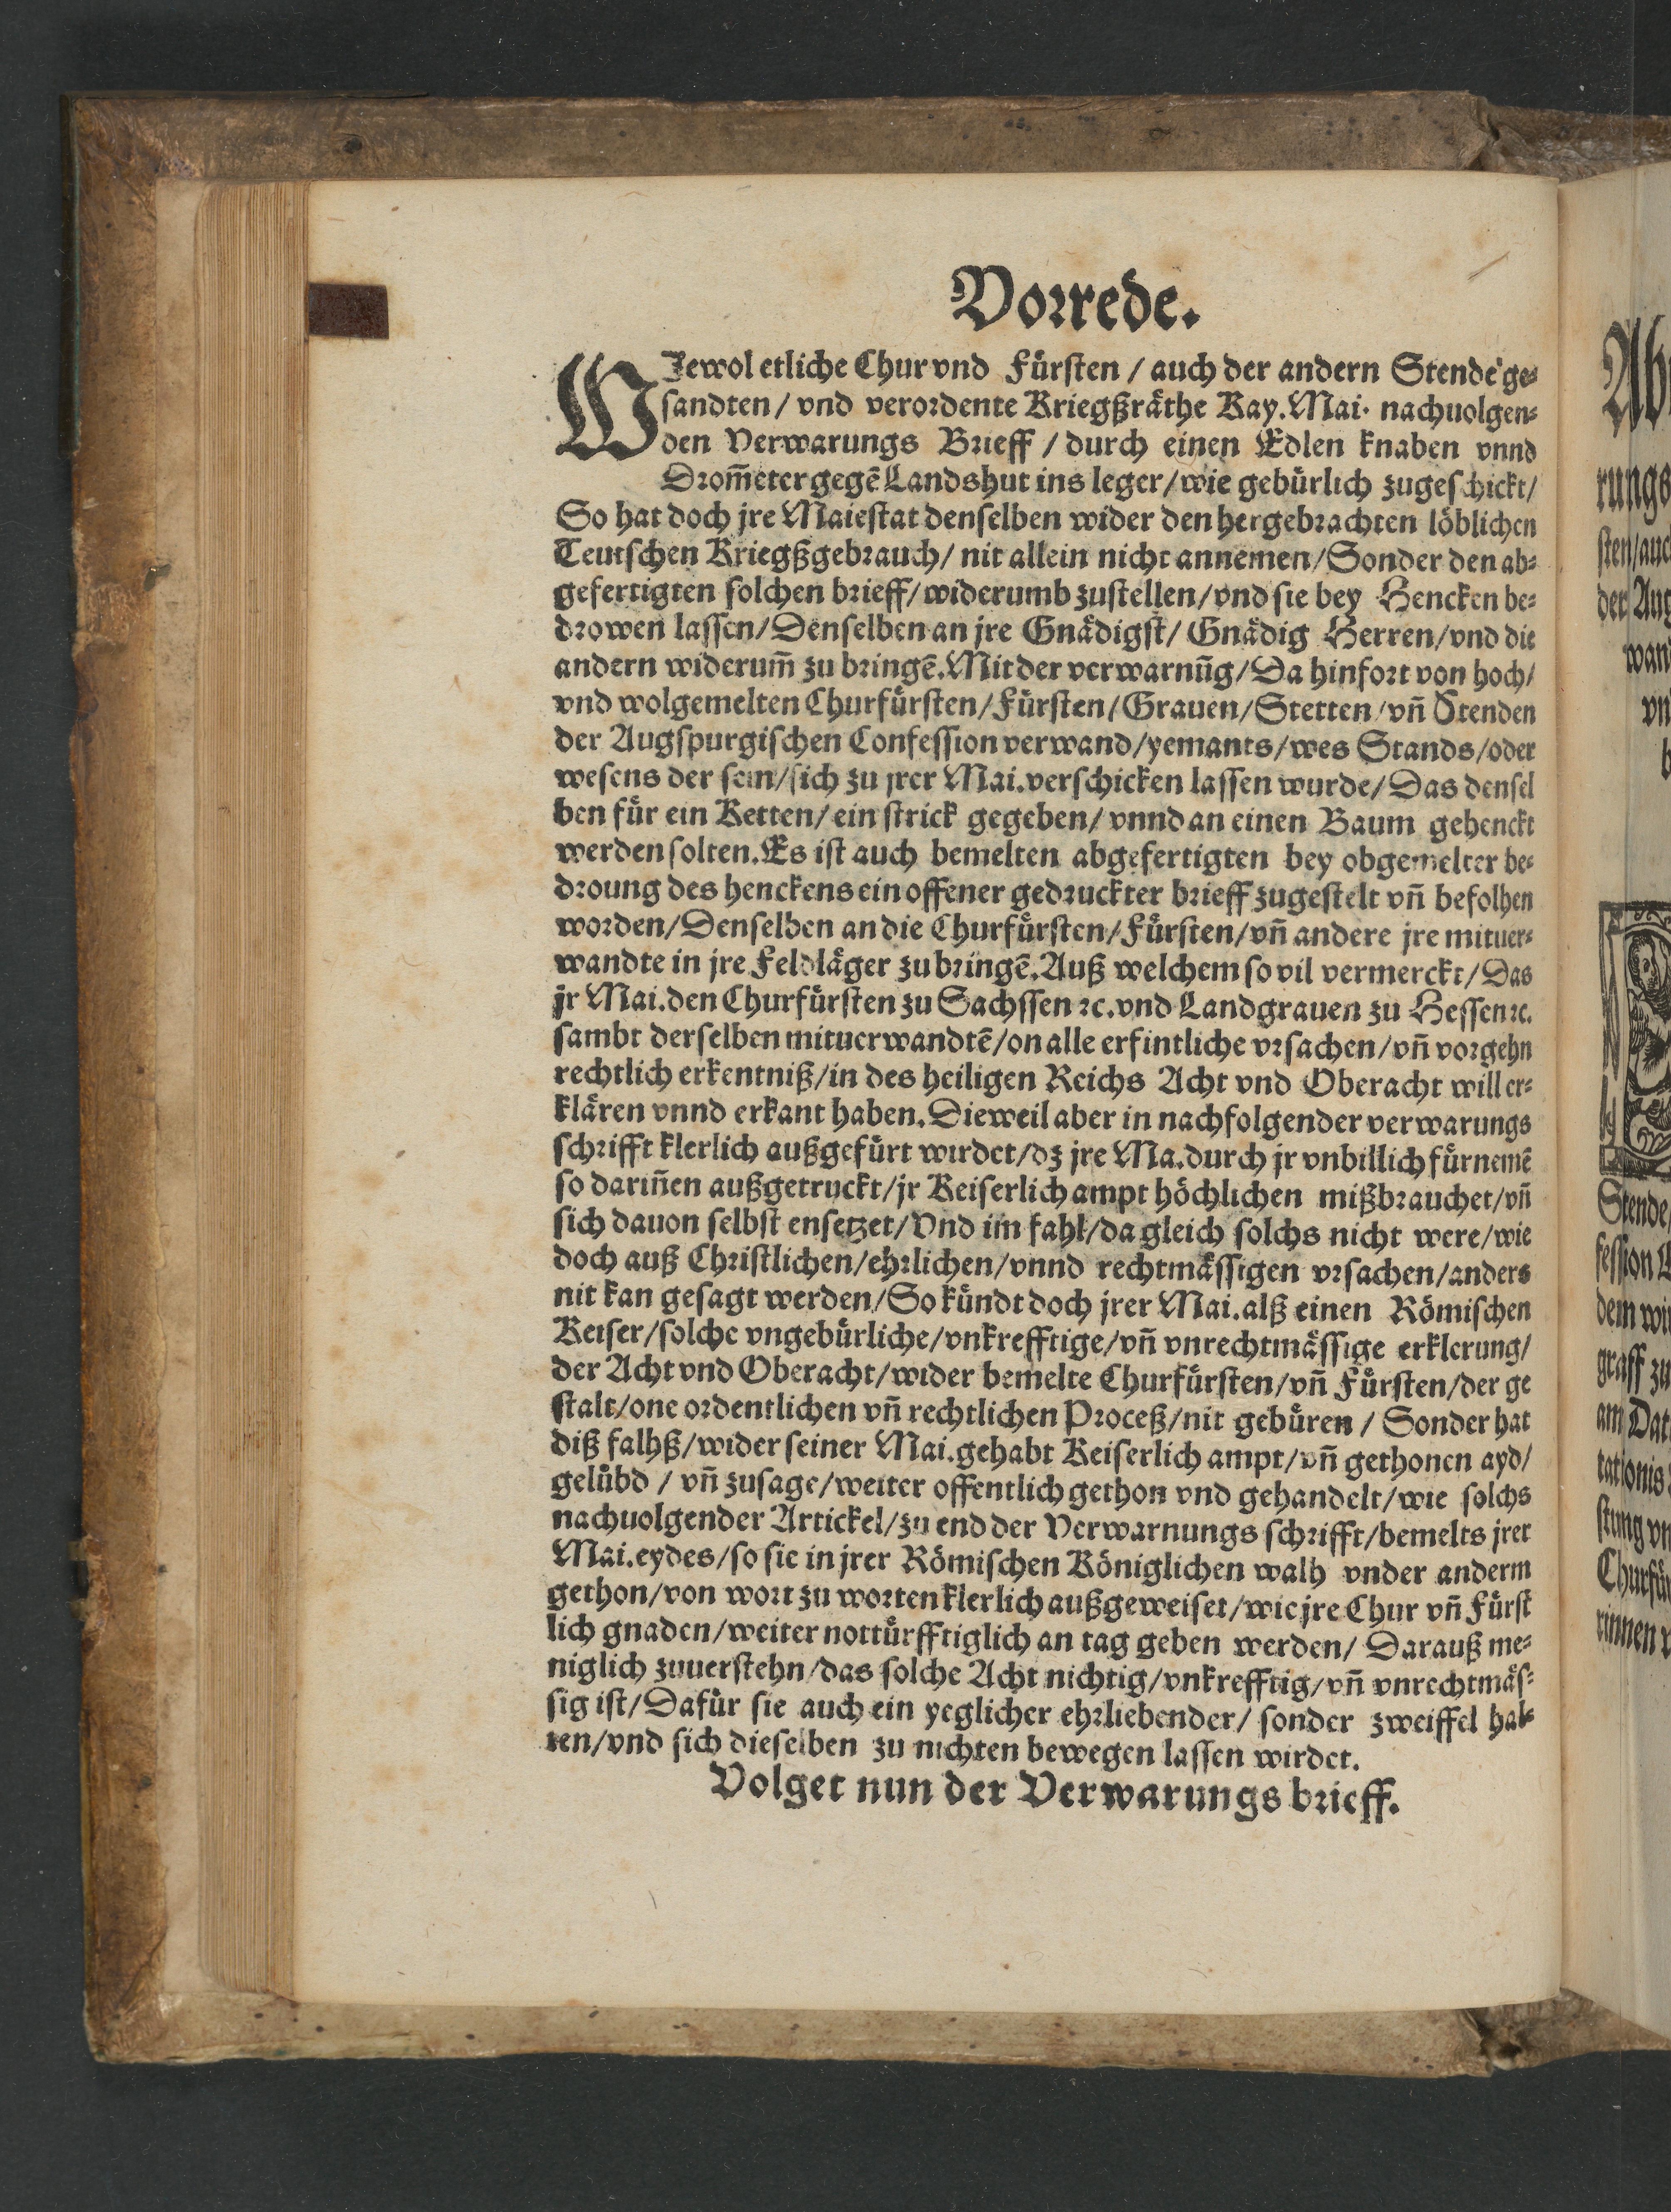 Vorrede.
WJewol etliche Chur vnd Fürsten / auch der andern Stende ge-
sandten / vnd verordente Kriegßräthe Kay. Mai. nachuolgen-
den Verwarungs Brieff / durch einen Edlen knaben vnnd
Drom̄eter gegē Landshut ins leger / wie gebürlich zugeschickt /
So hat doch jre Maiestat denselben wider den hergebrachten löblichen
Teutschen Kriegßgebrauch / nit allein nicht annemen / Sonder den ab-
gefertigten solchen brieff / widerumb zustellen / vnd sie bey Hencken be-
drowen lassen / Denselben an jre Gnädigst / Gnädig Herren / vnd die
andern widerum̄ zu bringē. Mit der verwarnūg / Da hinfort von hoch /
vnd wolgemelten Churfürsten / Fürsten / Grauen / Stetten / vn̄ Stenden
der Augspurgischen Confession verwand / yemants / wes Stands / oder
wesens der sein / sich zu jrer Mai. verschicken lassen wurde / Das densel
ben für ein Ketten / ein strick gegeben / vnnd an einen Baum gehenckt
werden solten. Es ist auch bemelten abgefertigten bey obgemelter be-
droung des henckens ein offener gedruckter brieff zugestelt vn̄ befolhen
worden / Denselben an die Churfürsten / Fürsten / vn̄ andere jre mituer-
wandte in jre Feldläger zu bringē. Auß welchem so vil vermerckt / Das
jr Mai. den Churfürsten zu Sachssen ꝛc. vnd Landgrauen zu Hessen ꝛc.
sambt derselben mituerwandtē / on alle erfintliche vrsachen / vn̄ vorgehn
rechtlich erkentniß / in des heiligen Reichs Acht vnd Oberacht will er-
klären vnnd erkant haben. Dieweil aber in nachfolgender verwarungs
schrifft klerlich außgefürt wirdet / dz jre Ma. durch jr vnbillich fürnemē
so darin̄en außgetruckt / jr Keiserlich ampt höchlichen mißbrauchet / vn̄
sich dauon selbst ensetzet / Vnd im fahl / da gleich solchs nicht were / wie
doch auß Christlichen / ehrlichen / vnnd rechtmässigen vrsachen / anders
nit kan gesagt werden / So kündt doch jrer Mai. alß einen Römischen
Keiser / solche vngebürliche / vnkrefftige / vn̄ vnrechtmässige erklerung /
der Acht vnd Oberacht / wider bemelte Churfürsten / vn̄ Fürsten / der ge
stalt / one ordentlichen vn̄ rechtlichen Proceß / nit gebüren / Sonder hat
diß falhß / wider seiner Mai. gehabt Keiserlich ampt / vn̄ gethonen ayd /
gelübd / vn̄ zusage / weiter offentlich gethon vnd gehandelt / wie solchs
nachuolgender Artickel / zu end der Verwarnungs schrifft / bemelts jrer
Mai. eydes / so sie in jrer Römischen Königlichen walh vnder anderm
gethon / von wort zu worten klerlich außgeweiset / wie jre Chur vn̄ Fürst
lich gnaden / weiter nottürfftiglich an tag geben werden / Darauß me-
niglich zuuerstehn / das solche Acht nichtig / vnkrefftig / vn̄ vnrechtmäs-
sig ist / Dafür sie auch ein yeglicher ehrliebender / sonder zweiffel hal-
ten / vnd sich dieselben zu nichten bewegen lassen wirdet.
Volget nun der Verwarungs brieff.